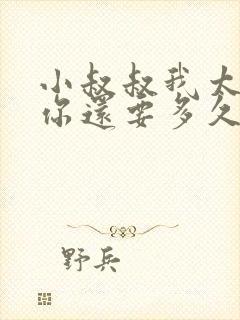 小叔叔我太
你還要多久
野兵